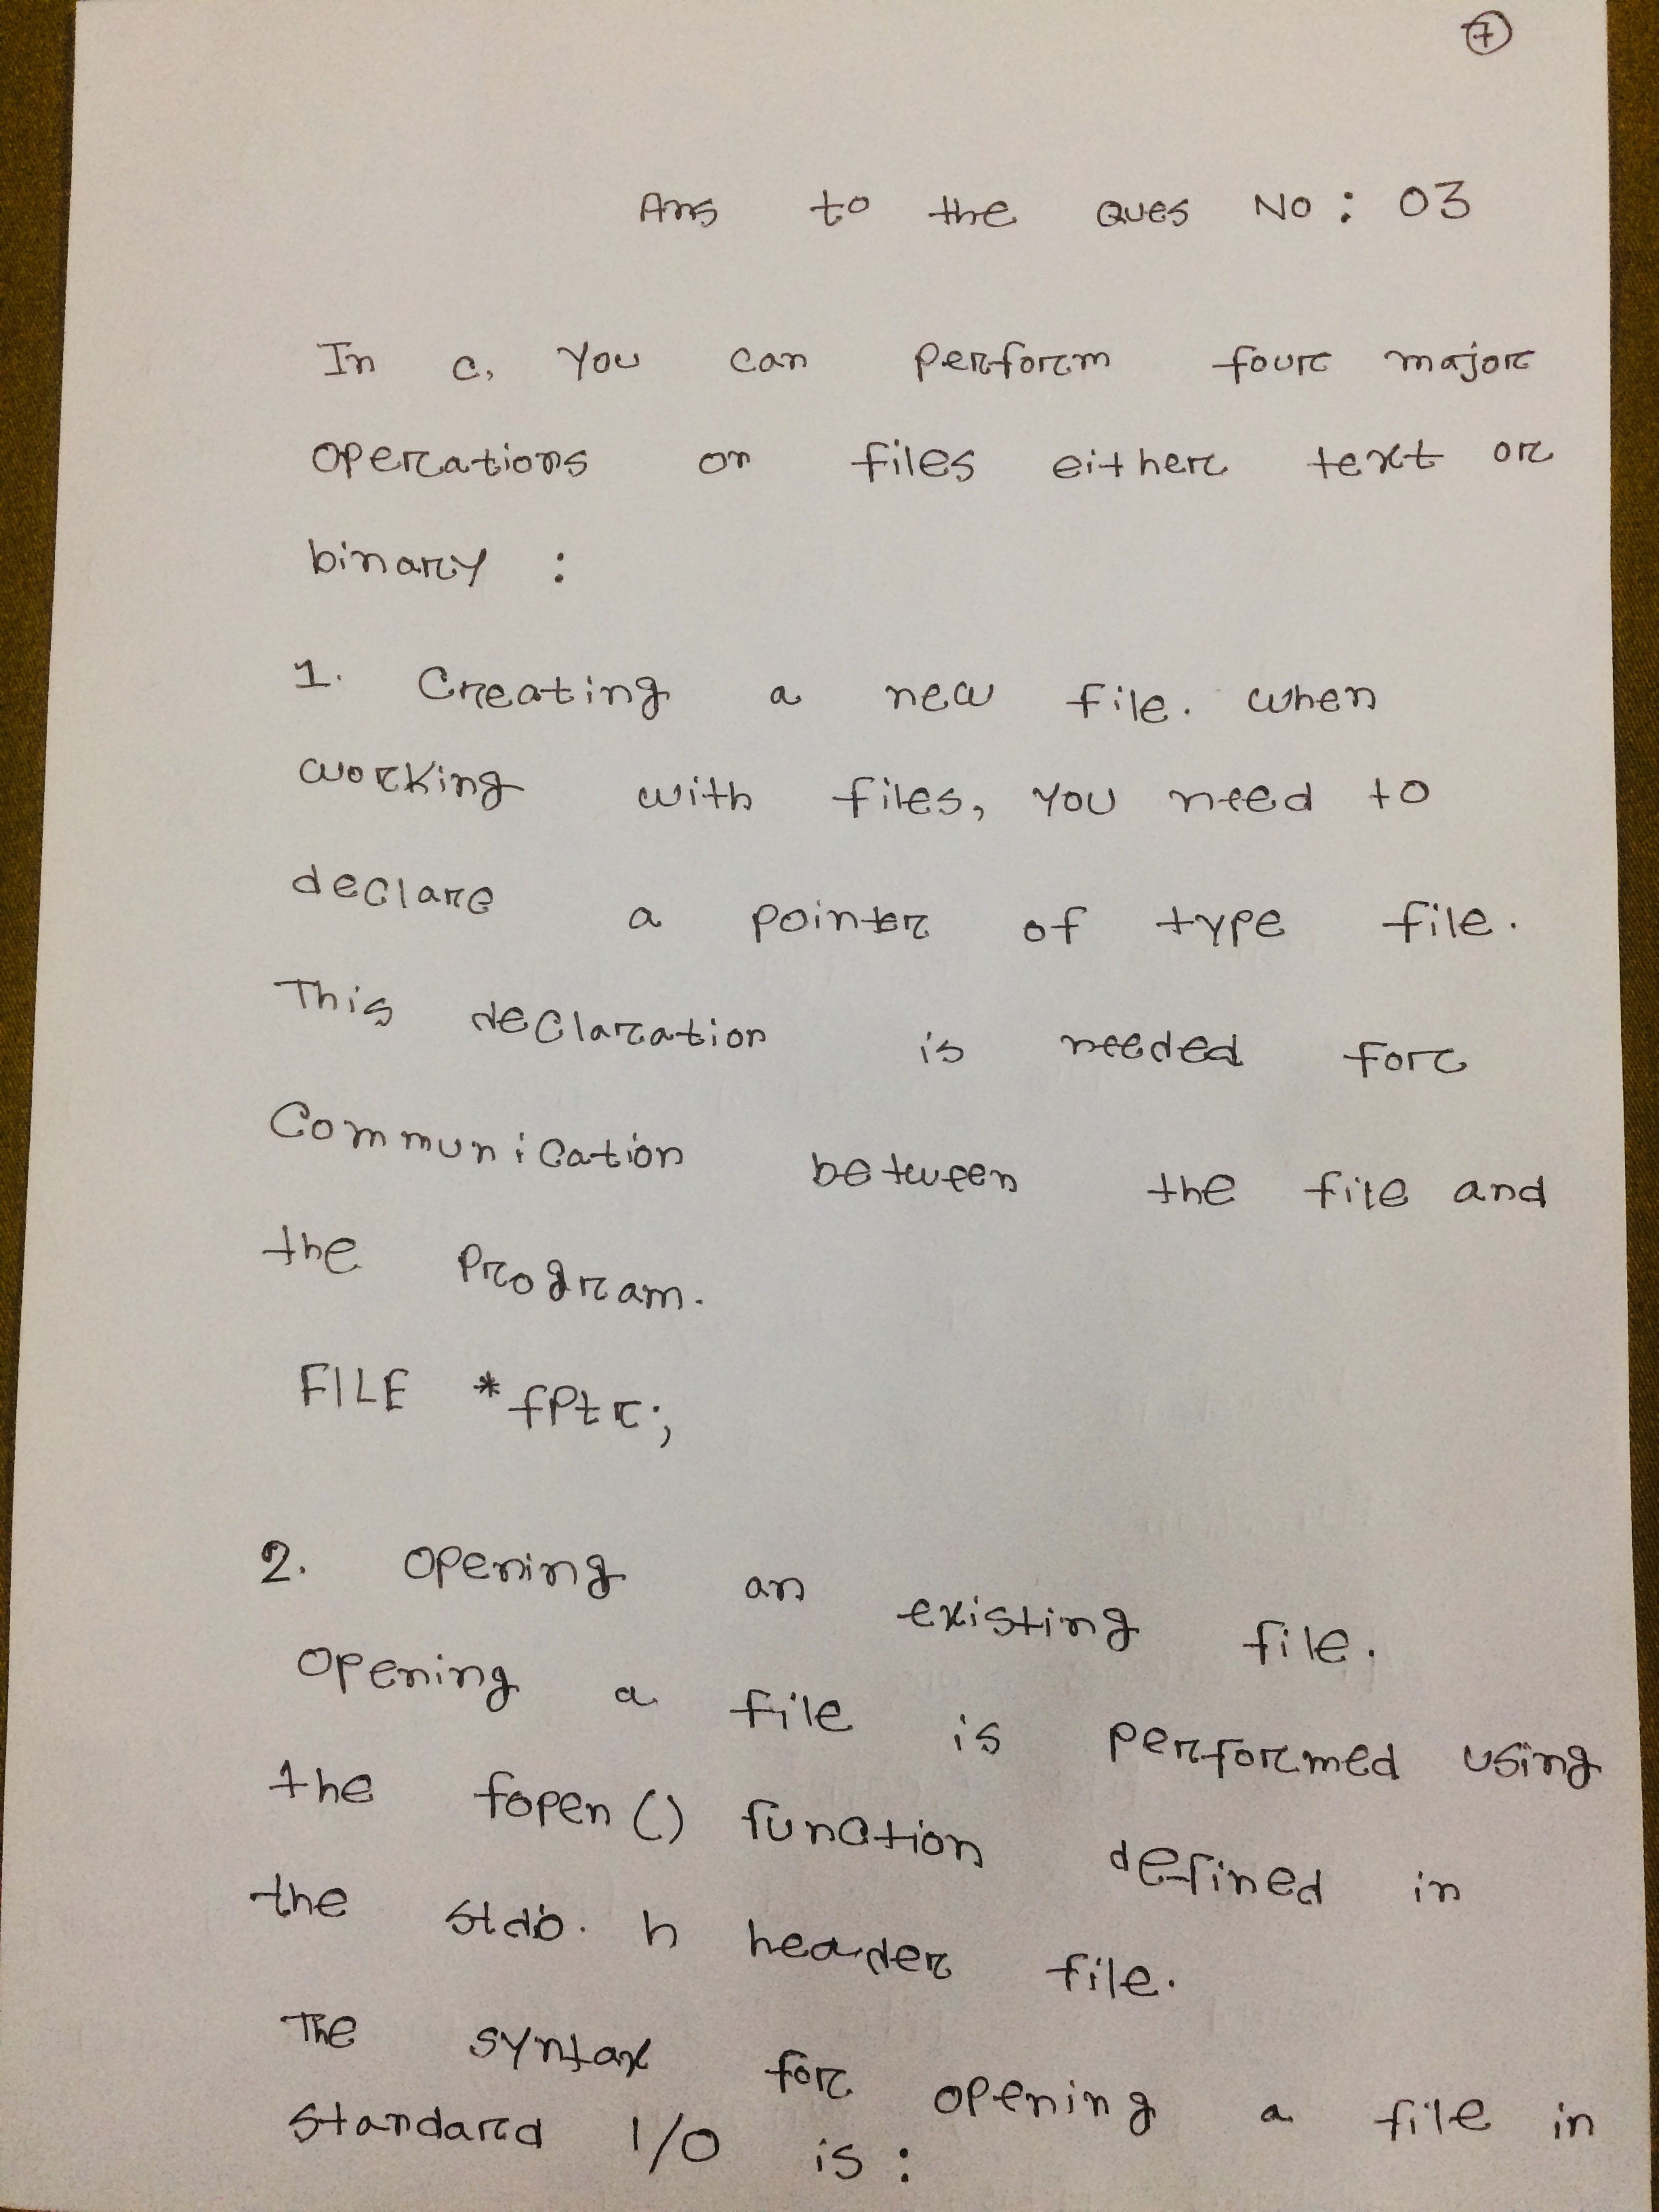 7
Ans to the Ques No: 03
In c, You can perform four major
operations on files either text or
binary :
1. Creating a new file. when
working with files, you need to
declare a pointer of type file.
This declaration is needed for
Communication between the file and
the Program.
FILE *fptr;
2. opening an existing file.
opening a file is performed using
the fopen() function defined in
the stdio. h header file.
The syntax for opening a file in
standard I/O is :